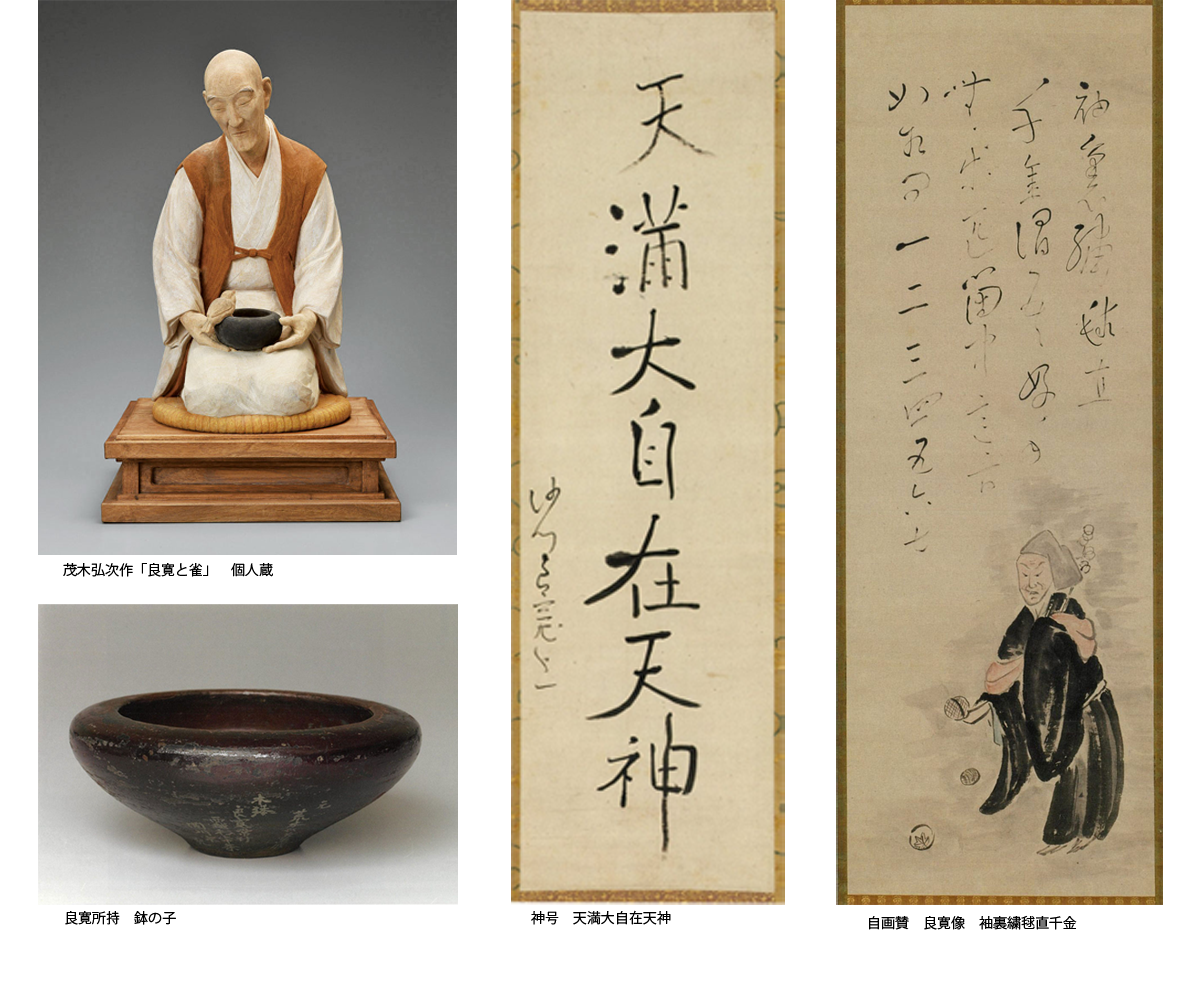 茂木弘次作「良寛と雀」　個人蔵
良寛所持　鉢の子
天満大自在天神
沙門良寛
神号　天満大自在天神
袖裏繍毬直
千金謂言好手
無等匹箇中意旨
如相問一二三四五六七
自画賛　良寛像　袖裏繍毬直千金